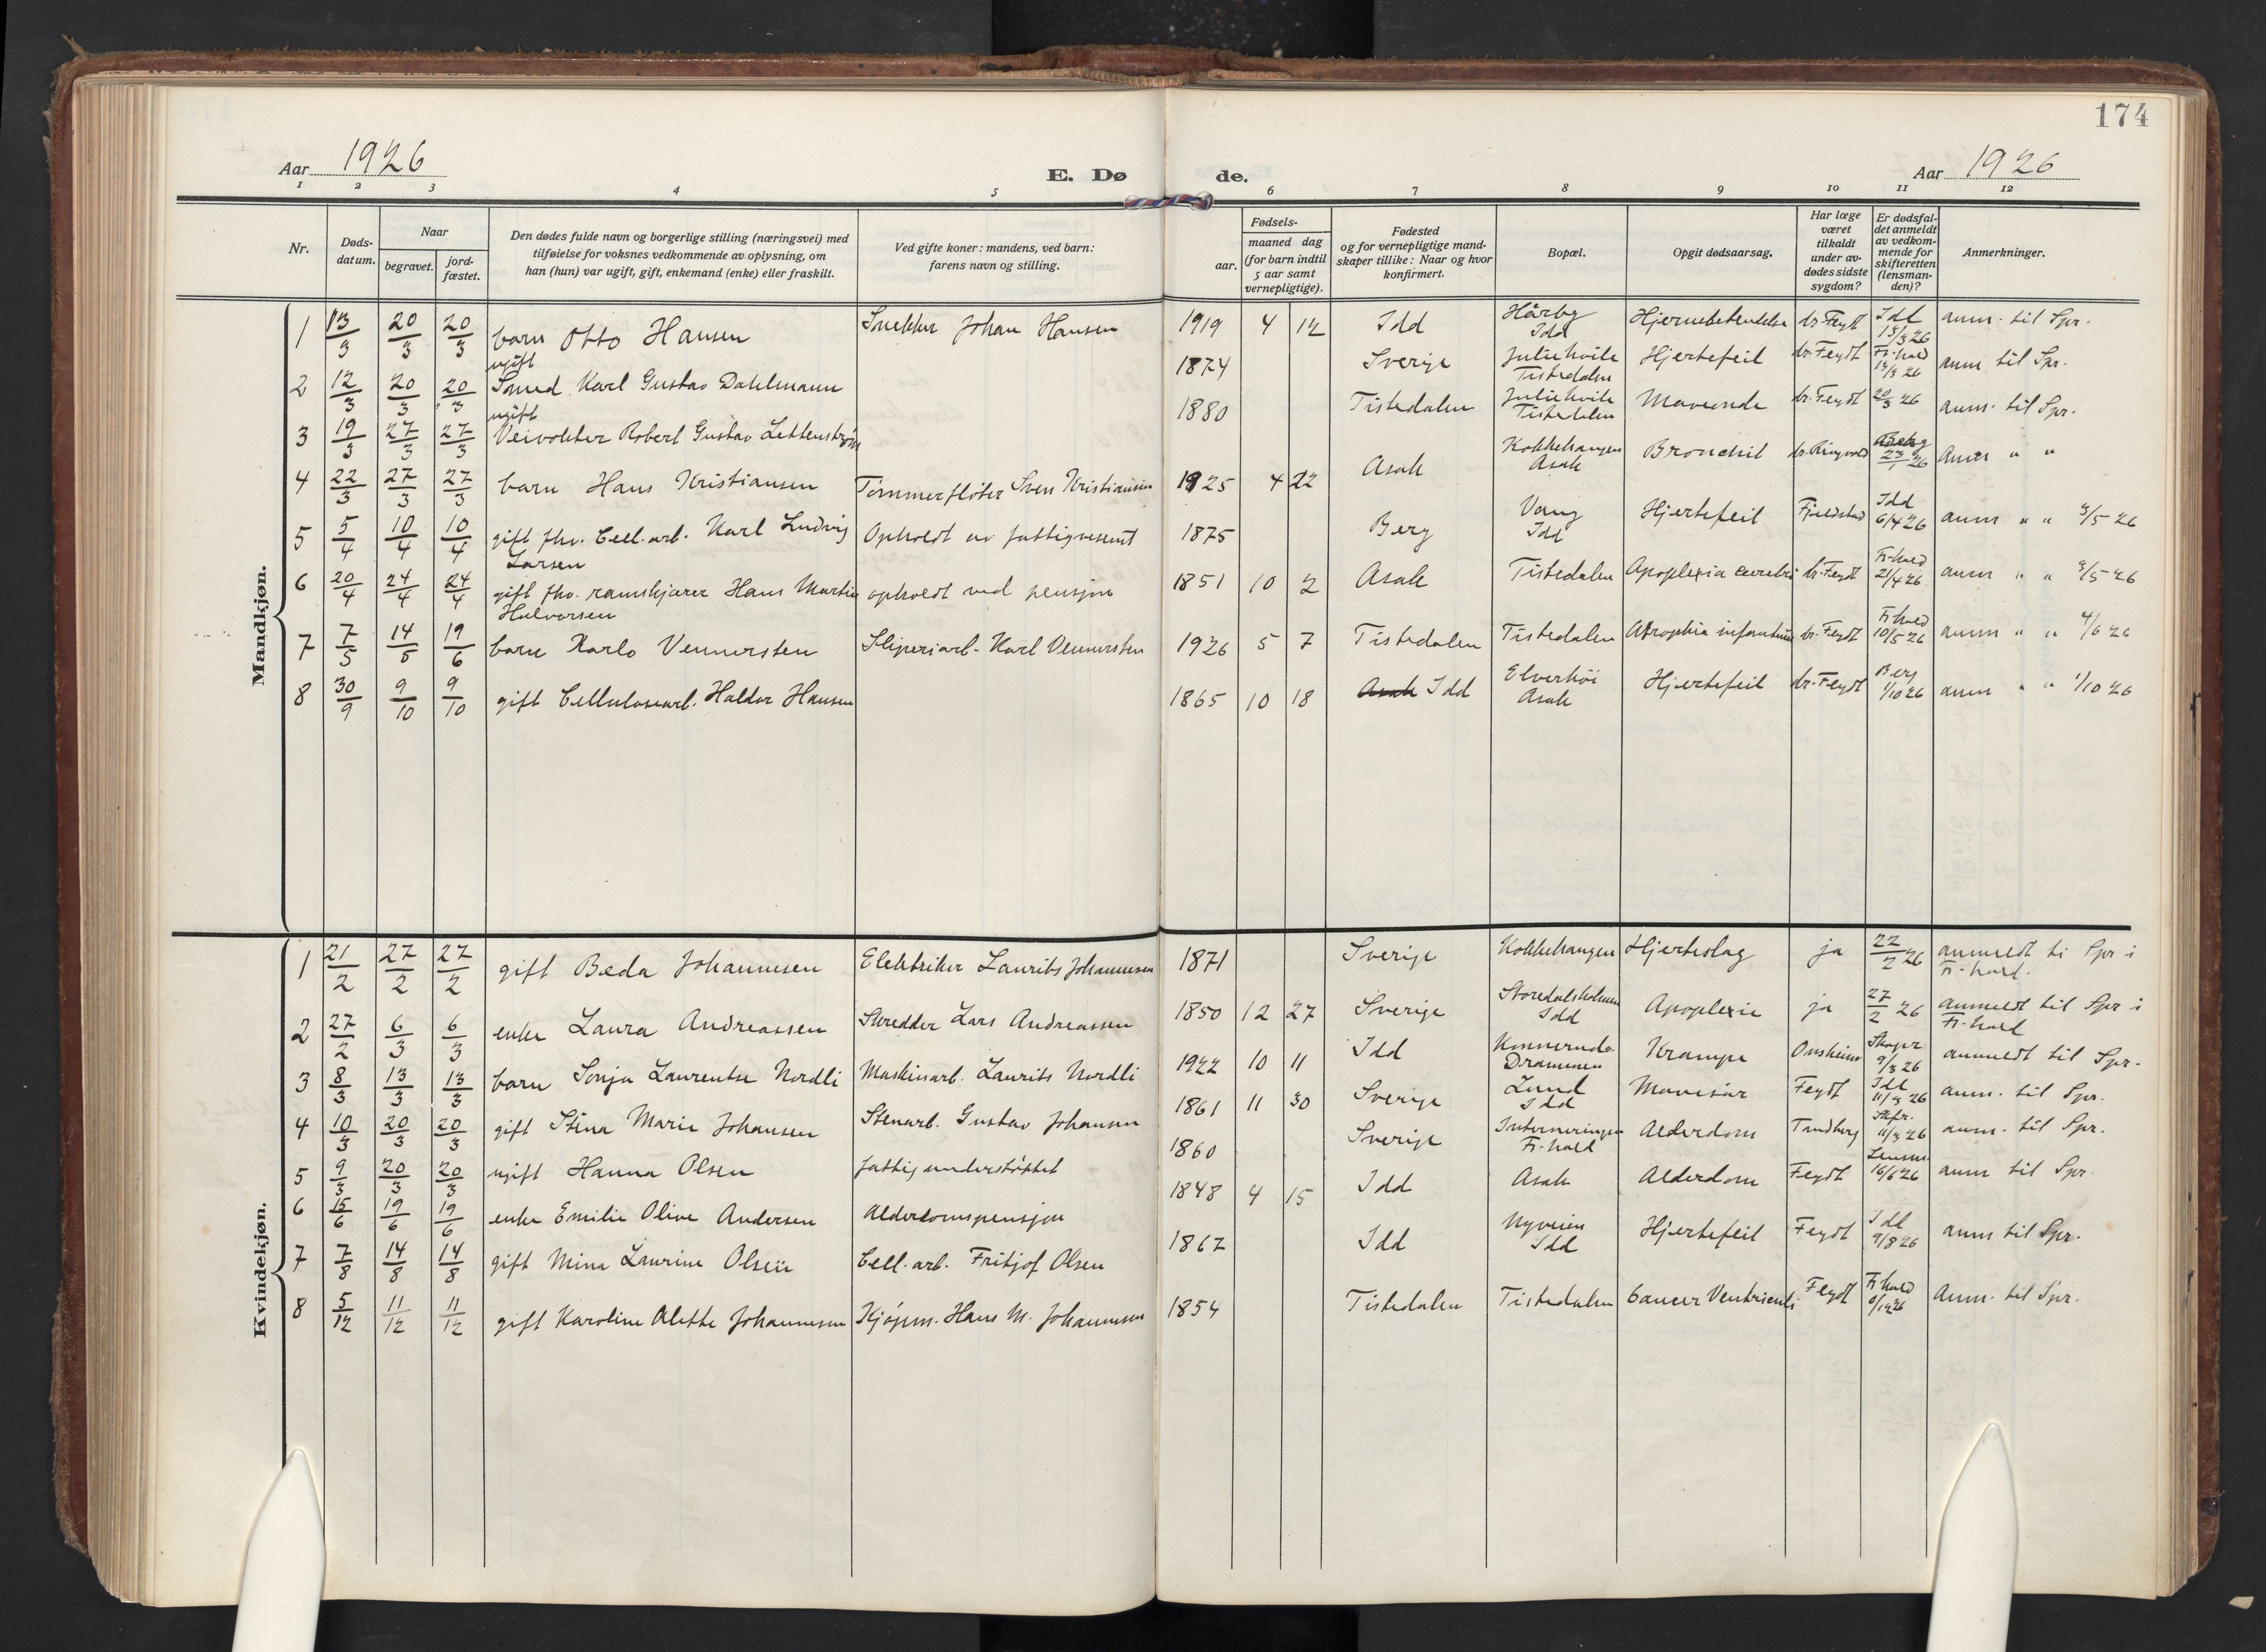 174
Aar 1926
E. Dø de.
Aar 1926
1 2 3 4 5 6 7 8 9 10 11 12
Nr.
Døds-datum.
Naar
begravet.
jord-fæstet.
Den dødes fulde navn og borgerlige stilling (næringsvei) med
tilføielse for voksnes vedkommende av oplysning, om
han (hun) var ugift, gift, enkemand (enke) eller fraskilt.
Ved gifte koner: mandens, ved barn:
farens navn og stilling.
Fødsels-
aar.
maaned dag
(for barn indtil
5 aar samt
vernepligtige).
Fødested
og for vernepligtige mand-
skaper tillike: Naar og hvor
konfirmert.
Bopæl.
Opgit dødsaarsag.
Har læge
været
tilkaldt
under av-
dødes sidste
sygdom?
Er dødsfal-
det anmeldt
av vedkom-
mende for
skifteretten
(lensman-
den)?
Anmerkninger.
Mandkjøn.
1 13/3 20/3 20/3 barn Otto Hansen Snekker Johan Hansen 1919 4 12 Idd Hårby Idd Hjernebetendelse dr. Feydt Idd 13/3 26 anm. til Spr.
2 12/3 20/3 20/3 ugift Smed Karl Gustav Dahlmann 1874 Sverige Juliehvile Tistedalen Hjertefeil dr. Feydt Fr.hald 13/3 26 anm til Spr.
3 19/3 27/3 27/3 ugift Veivokter Robert Gustav Lettenstrøm 1880 Tistedalen Juliehvile Tistedalen Maveonde dr. Feydt 20/3 26 anm. til Spr.
4 22/3 27/3 27/3 barn Hans Kristiansen Tømmerfløter Sven Kristiansen 1925 4 22 Asak Kokkehaugen Asak Bronchit dr. Ringvold 23/1 26 Anm " "
5 5/4 10/4 10/4 gift fhv. Cell.arb. Karl Ludvig Larsen Opholdt av fattigvesenet 1875 Berg Vang Idd Hjertefeil Fjeldstad Idd 6/4 26 anm " " 3/5 26
6 20/4 24/4 24/4 gift fhv. ramskjærer Hans Martin Halvorsen opholdt ved pensjon 1851 10 2 Asak Tistedalen Apoplexia cerebri dr. Feydt Fr.hald 21/4 26 anm " " 3/5 26
7 7/5 14/5 19/6 barn Karlo Vennersten Sliperiarb. Karl Vennersten 1926 5 7 Tistedalen Tistedalen Atrophia infantum dr. Feydt Fr.hald 10/5 26 anm " " 4/6 26
8 30/9 9/10 9/10 gift Cellulosearb. Haldor Hansen 1865 10 18 Asak Idd Elverhøi Asak Hjertefeil dr. Feydt Berg 1/10 26 anm " " 1/10 26
Kvindekjøn.
1 21/2 27/2 27/2 gift Beda Johannesen Elektriker Laurits Johannesen 1871 Sverige Kokkehaugen Hjerteslag ja 22/2 26 anmeldt ti Spr i Fr.hald.
2 27/2 6/3 6/3 enke Laura Andreassen Skredder Lars Andreassen 1850 12 27 Sverige Storedalsholmen Idd Apoplexie ja 27/2 26 anmeldt til Spr i Fr.hald
3 8/3 13/3 13/3 barn Sonja Laurentse Nordli Maskinarb. Laurits Nordli 1922 10 11 Idd Konnerudg. Drammen Krampe Onsheim Skoger 9/3 26 anmeldt til Spr.
4 10/3 20/3 20/3 gift Stina Marie Johansen Stenarb. Gustav Johansen 1861 11 30 Sverige Lund Idd Mavesår Feydt Idd 11/3 26 anm. til Spr.
5 9/3 20/3 20/3 ugift Hanna Olsen fattigunderstøttet 1860 Sverige Interneringen Fr.hald Alderdom Tandberg Skfr. 11/3 26 anm. til Spr.
6 15/6 19/6 19/6 enke Emilie Olive Andersen Alderdomspensjon 1848 4 15 Idd Asak Alderdom Feydt Lensm. 16/6 26 anm til Spr.
7 7/8 14/8 14/8 gift Mina Laurine Olsen Cell.arb. Fritjof Olsen 1867 Idd Nyveien Idd Hjertefeil Feydt Idd 9/8 26 anm til Spr.
8 5/12 11/12 11/12 gift Karoline Alette Johannesen Kjøpm. Hans M. Johannesen 1854 Tistedalen Tistedalen Cancer Ventriculi Feydt Fr.hald Anm. til Spr.